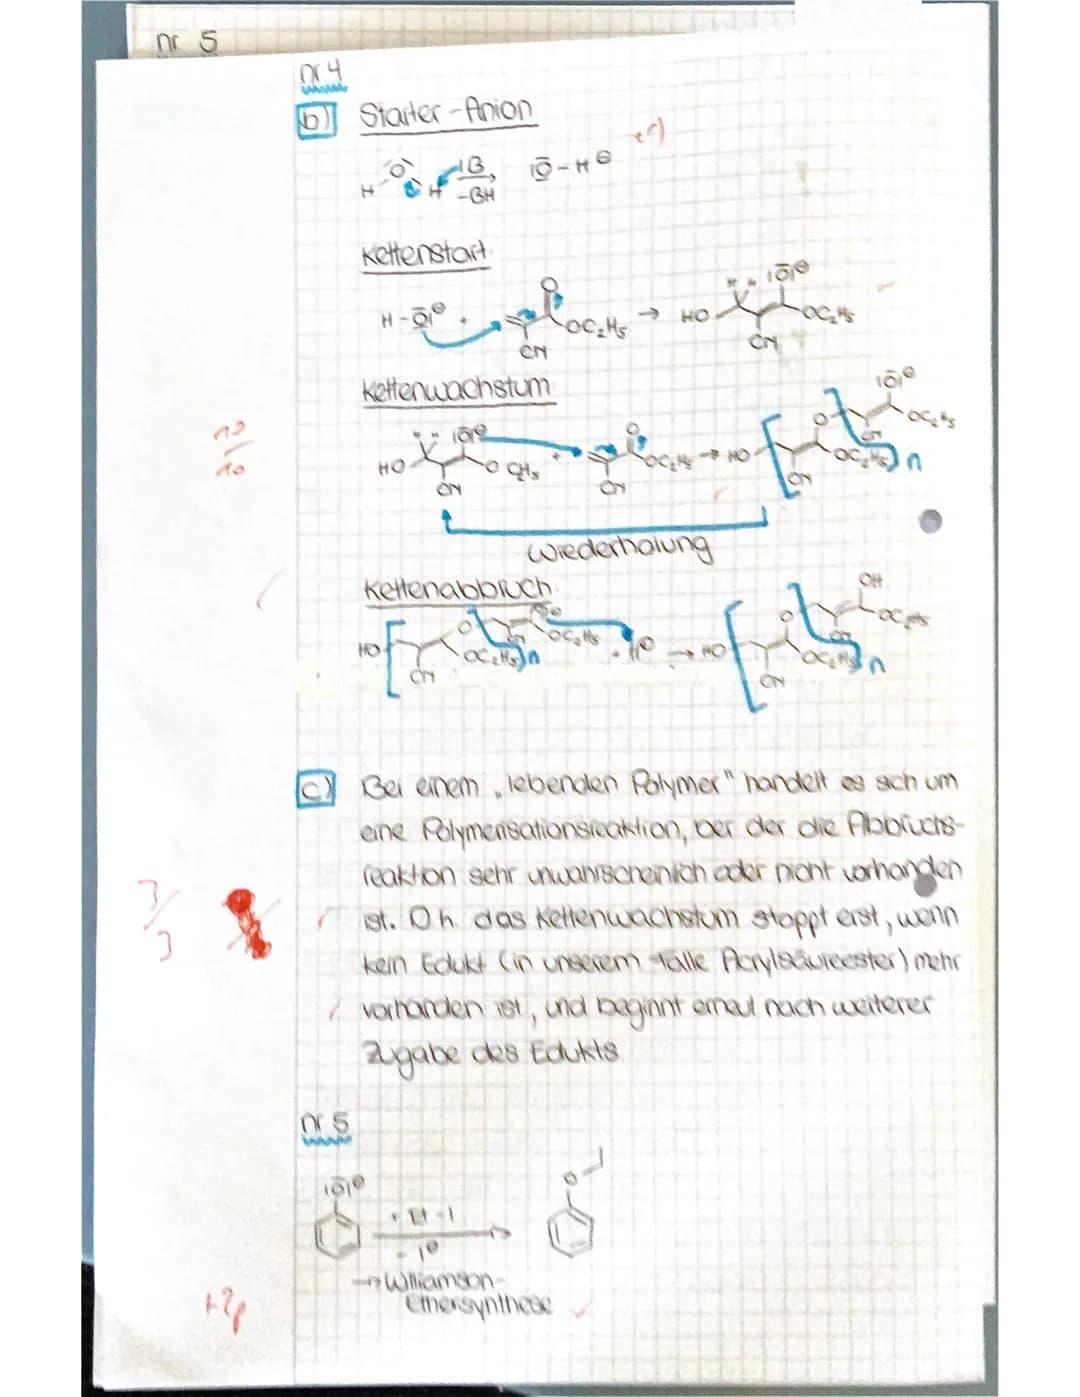 nr 5
nr 4
b) Starter-Anion
H O H |B -BH |O-H⊖
Kettenstart
H-O|⊖ + O OC₂H₅ CN → HO "V" |O|⊖ OC₂H₅ CN
Kettenwachstum
HO "V" |O|⊖ OC₂H₅ CN + O OC₂H₅ CN → HO CN O OC₂H₅ CN |O|⊖ OC₂H₅ n
10
10
Wiederholung
Kettenabbruch
HO CN O OC₂H₅ CN OC₂H₅ n + H⊕ → HO CN O OC₂H₅ CN OH OC₂H₅ n
c) Bei einem „lebenden Polymer" handelt es sich um
eine Polymerisationsreaktion, bei der die Abbruchs-
reaktion sehr unwahrscheinlich oder nicht vorhanden
ist. D.h. das Kettenwachstum stoppt erst, wenn
kein Edukt (in unserem Falle Acrylsäureester) mehr
vorhanden ist, und beginnt erneut nach weiterer
Zugabe des Edukts
3
3
nr 5
|O|⊖ + Et-I - I⊖ O
→ Williamson-
Ethersynthese
+2p